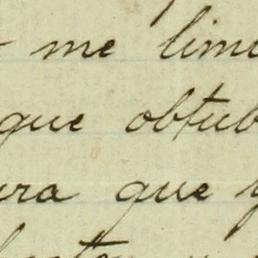 me limi
que obtub
ura que y